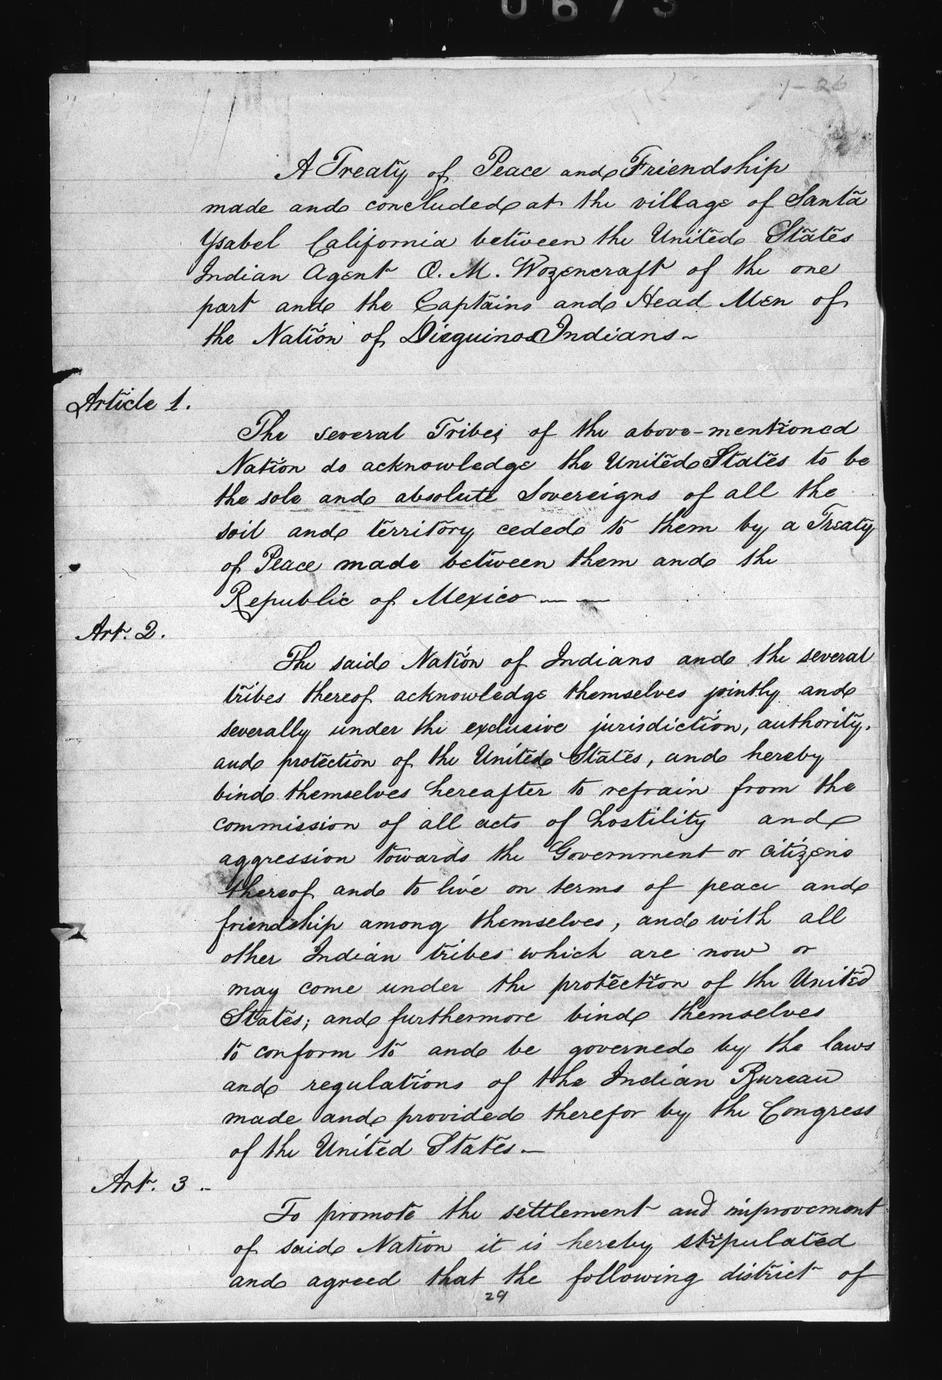 0673
1-26
A Treaty of Peace and Friendship
made and concluded at the village of Santa
Ysabel California between the United States
Indian Agent O. M. Wozencraft of the one
part and the Captains and Head Men of
the Nation of Dieguinos Indians ~
Article 1.
The several Tribes of the above-mentioned
Nation do acknowledge the United States to be
the sole and absolute Sovereigns of all the
soil and territory ceded to them by a Treaty
of Peace made between them and the
Republic of Mexico — —
Art. 2.
The said Nation of Indians and the several
tribes thereof acknowledge themselves jointly and
severally under the exclusive jurisdiction, authority.
and protection of the United States, and hereby
bind themselves hereafter to refrain from the
commission of all acts of hostility and
aggression towards the Government or citizens
thereof and to live on terms of peace and
friendship among themselves, and with all
other Indian tribes which are now or
may come under the protection of the United
States; and furthermore bind themselves
to conform to and be governed by the laws
and regulations of the Indian Bureau
made and provided therefor by the Congress
of the United States. —
Art. 3 -
To promote the settlement and improvement
of said Nation it is hereby stipulated
and agreed that the following district of
29